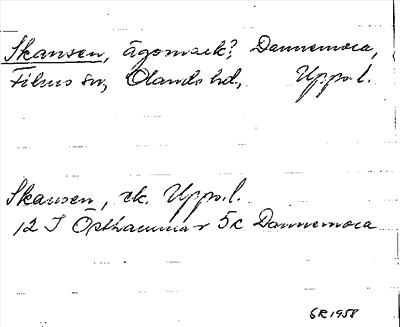 Skansen, ägomark?, Dannemora,
Films sn, Olands hd, Upps.l.
Skansen, ek. Upps.l.
12 I Östhammar 5c Dannemora
GR 1958